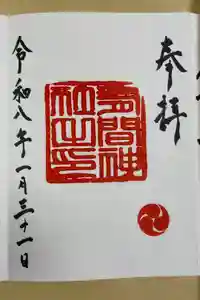 奉拝
多間神社之印
令和八年一月三十一日